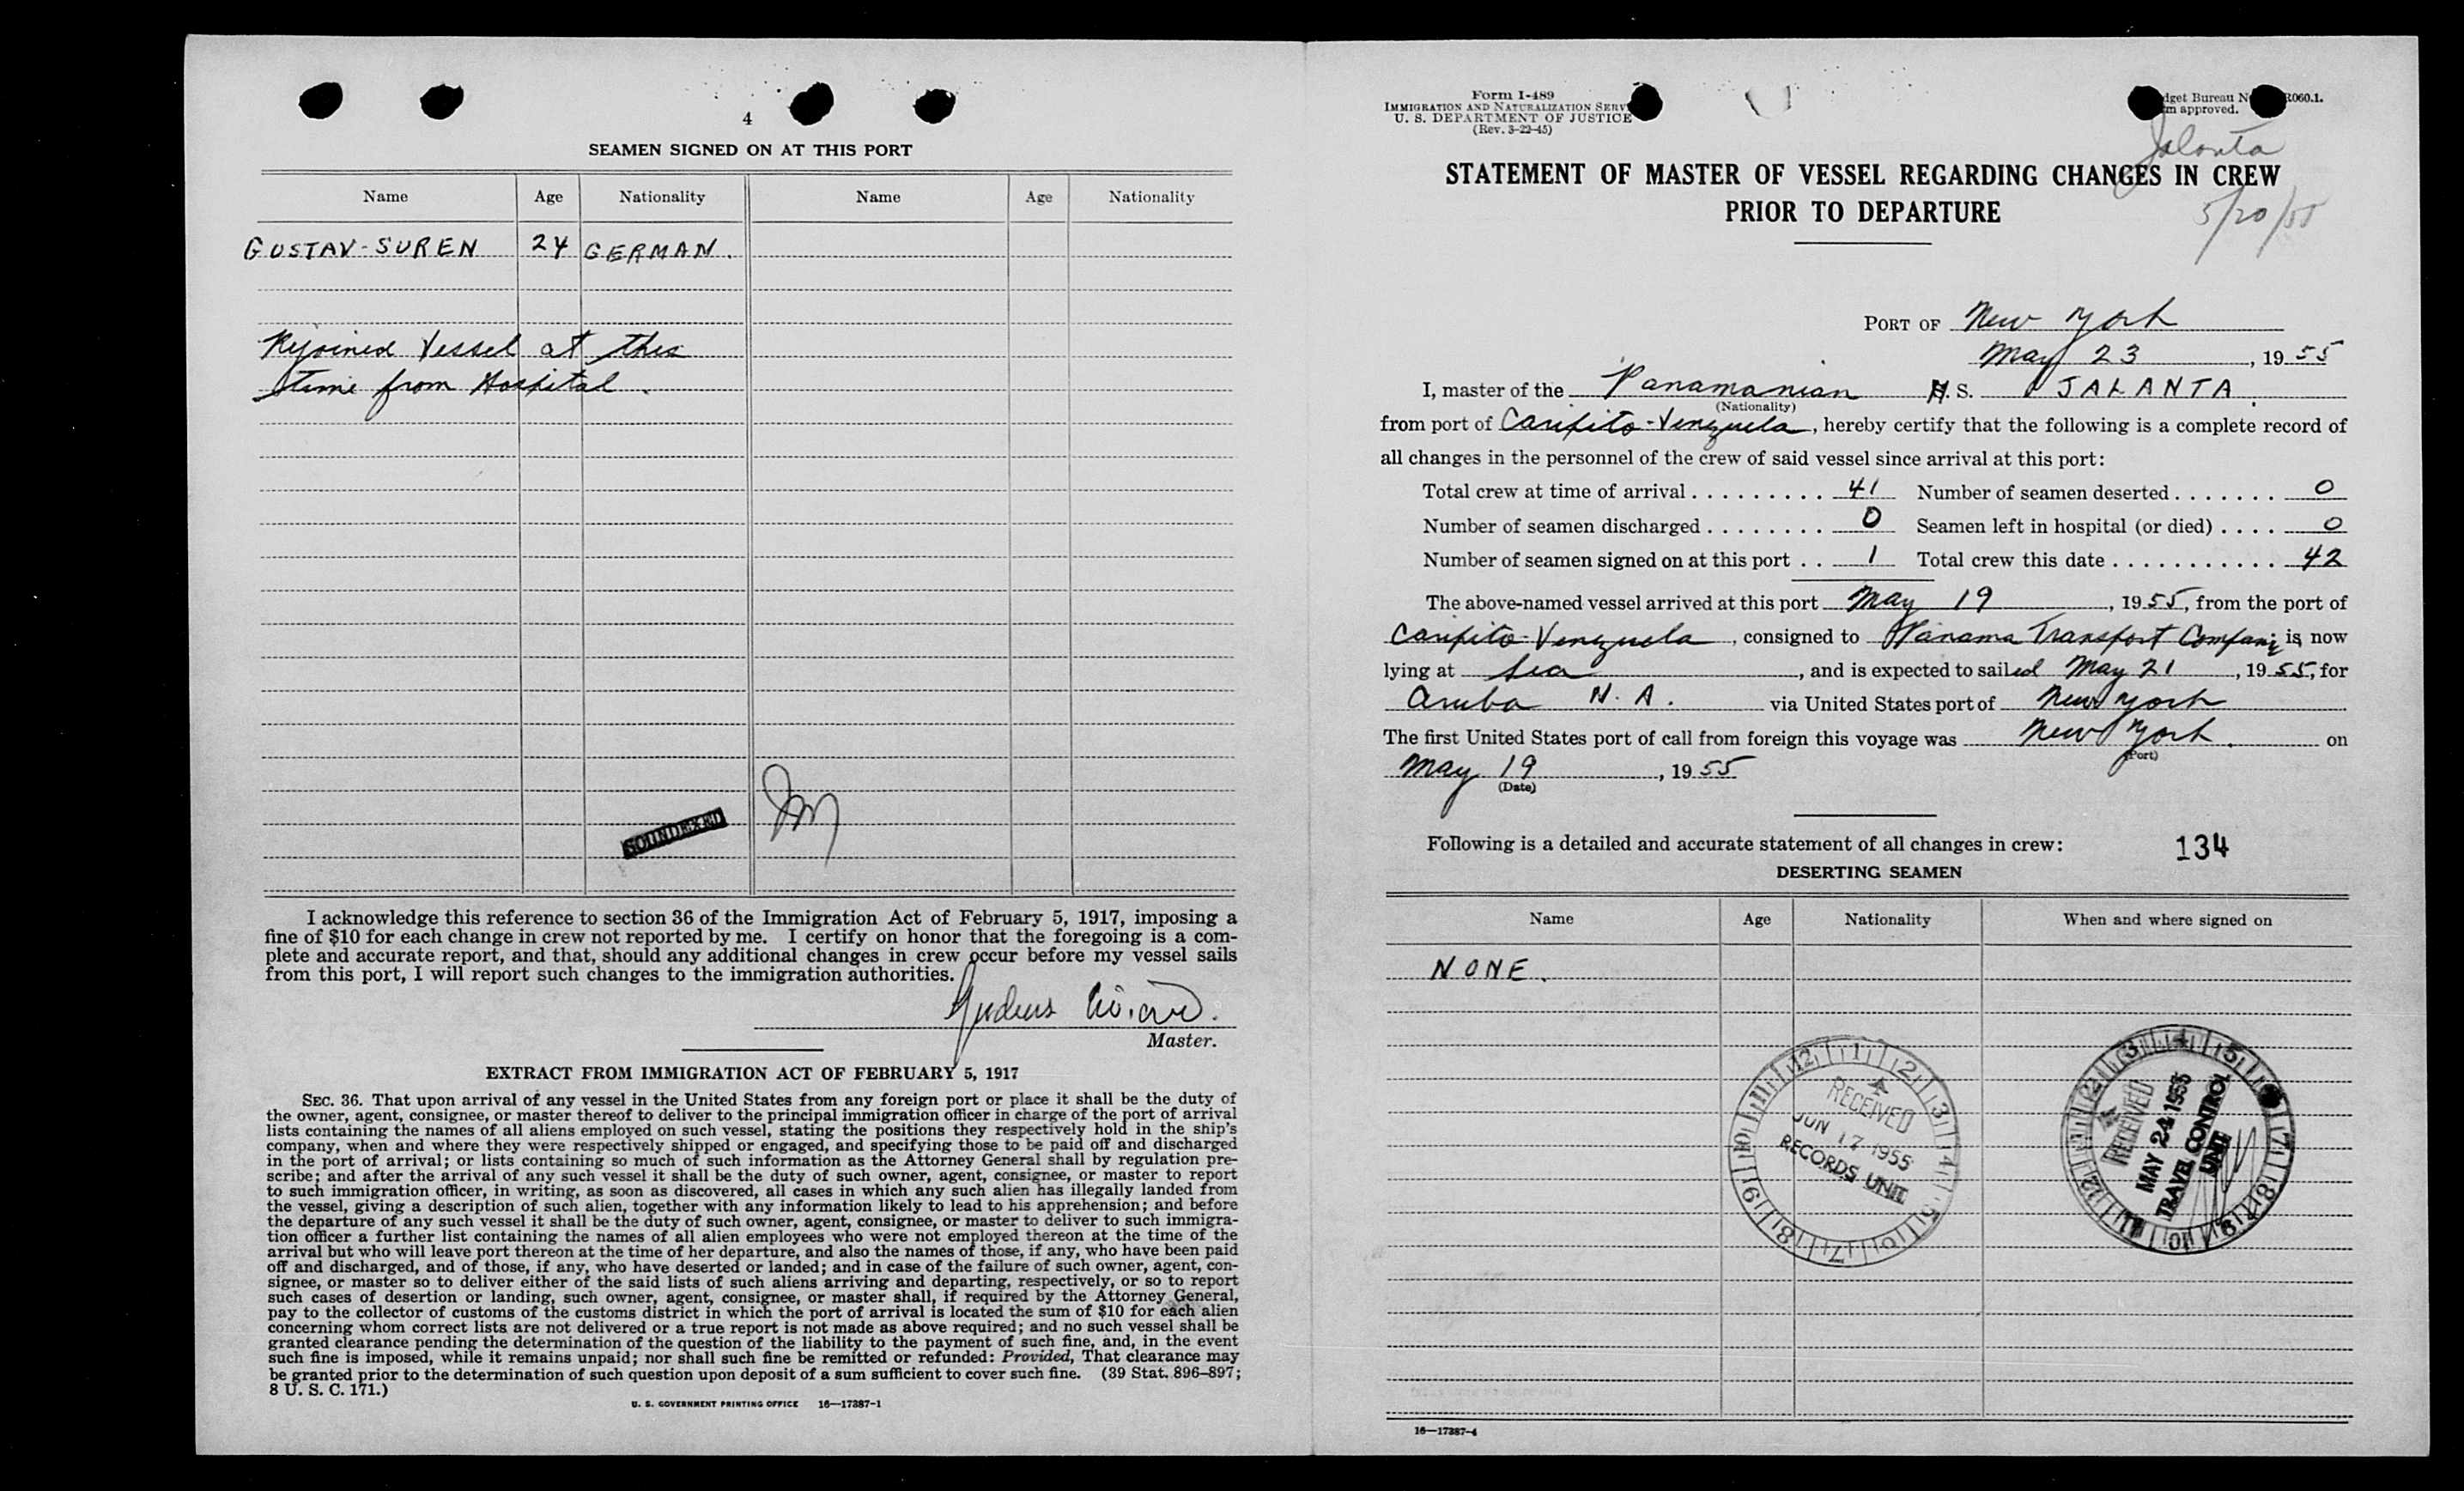 4
SEAMEN SIGNED ON AT THIS PORT
Name Age Nationality Name Age Nationality
GUSTAV-SUREN 24 GERMAN.
Rejoined Vessel at this
time from Hospital.
SOUNDEXED
I acknowledge this reference to section 36 of the Immigration Act of February 5, 1917, imposing a
fine of $10 for each change in crew not reported by me. I certify on honor that the foregoing is a com-
plete and accurate report, and that, should any additional changes in crew occur before my vessel sails
from this port, I will report such changes to the immigration authorities.
Master.
EXTRACT FROM IMMIGRATION ACT OF FEBRUARY 5, 1917
SEC. 36. That upon arrival of any vessel in the United States from any foreign port or place it shall be the duty of
the owner, agent, consignee, or master thereof to deliver to the principal immigration officer in charge of the port of arrival
lists containing the names of all aliens employed on such vessel, stating the positions they respectively hold in the ship's
company, when and where they were respectively shipped or engaged, and specifying those to be paid off and discharged
in the port of arrival; or lists containing so much of such information as the Attorney General shall by regulation pre-
scribe; and after the arrival of any such vessel it shall be the duty of such owner, agent, consignee, or master to report
to such immigration officer, in writing, as soon as discovered, all cases in which any such alien has illegally landed from
the vessel, giving a description of such alien, together with any information likely to lead to his apprehension; and before
the departure of any such vessel it shall be the duty of such owner, agent, consignee, or master to deliver to such immigra-
tion officer a further list containing the names of all alien employees who were not employed thereon at the time of the
arrival but who will leave port thereon at the time of her departure, and also the names of those, if any, who have been paid
off and discharged, and of those, if any, who have deserted or landed; and in case of the failure of such owner, agent, con-
signee, or master so to deliver either of the said lists of such aliens arriving and departing, respectively, or so to report
such cases of desertion or landing, such owner, agent, consignee, or master shall, if required by the Attorney General,
pay to the collector of customs of the customs district in which the port of arrival is located the sum of $10 for each alien
concerning whom correct lists are not delivered or a true report is not made as above required; and no such vessel shall be
granted clearance pending the determination of the question of the liability to the payment of such fine, and, in the event
such fine is imposed, while it remains unpaid; nor shall such fine be remitted or refunded: Provided, That clearance may
be granted prior to the determination of such question upon deposit of a sum sufficient to cover such fine. (39 Stat. 896–897;
8 U. S. C. 171.)
U. S. GOVERNMENT PRINTING OFFICE 16—17387-1
Form I-489
IMMIGRATION AND NATURALIZATION SERV
U. S. DEPARTMENT OF JUSTICE
(Rev. 3-22-45)
dget Bureau N R060.1.
m approved.
Jalanta
5/20/55
STATEMENT OF MASTER OF VESSEL REGARDING CHANGES IN CREW
PRIOR TO DEPARTURE
PORT OF New York
May 23, 1955
I, master of the Panamanian S. JALANTA.
(Nationality)
from port of Caripito-Venzuela, hereby certify that the following is a complete record of
all changes in the personnel of the crew of said vessel since arrival at this port:
Total crew at time of arrival ......... 41 Number of seamen deserted ....... 0
Number of seamen discharged ........ 0 Seamen left in hospital (or died) .... 0
Number of seamen signed on at this port .. 1 Total crew this date ........... 42
The above-named vessel arrived at this port May 19, 1955, from the port of
Caripito-Venzuela, consigned to Panama Transport Company is now
lying at Sea, and is expected to sailed May 21, 1955, for
Aruba N. A. via United States port of New York
The first United States port of call from foreign this voyage was New York. on
(Port)
May 19, 1955
(Date)
Following is a detailed and accurate statement of all changes in crew: 134
DESERTING SEAMEN
Name Age Nationality When and where signed on
NONE.
12 1 2 3 4 5 6 7 8 9 10 11
RECEIVED
JUN 17 1955
RECORDS UNIT
RECEIVED
MAY 24 1955
TRAVEL CONTROL
UNIT
16—17387-4